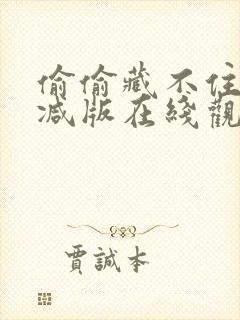 偷偷藏不住
减版在綫觀
賈誠本